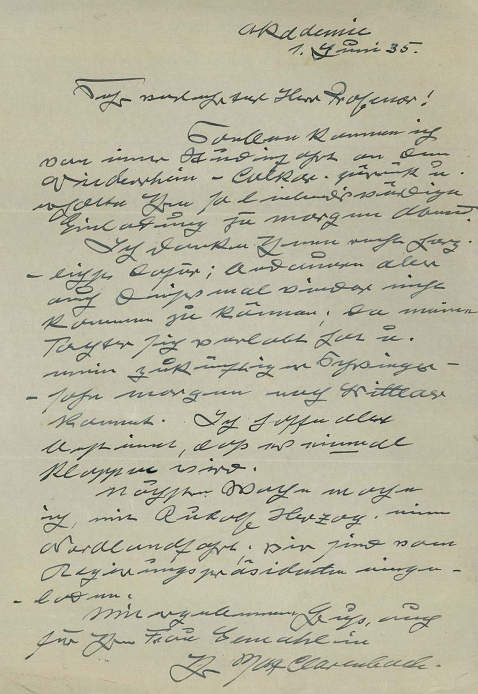 Akademie
1. Juni 35.
Sehr verehrter Herr Professor!
Soeben komme ich
von einer Studienfahrt an den
Niederrhein - Calkar. zurück u.
erhalte Ihre so liebenswürdige
Einladung zu morgen Abend.
Ich danke Ihnen recht herz-
-lichst dafür; bedauere aber
auch diesmal wieder nicht
kommen zu können; da meine
Tochter sich verlobt hat u.
mein zukünftiger Schwieger-
-sohn morgen nach Wittlaer
kommt. Ich hoffe aber
bestimmt, daß es einmal
klappen wird.
Nächste Woche mache
ich, mit Rudolf Herzog. eine
Nordlandfahrt. wir sind vom
Regierungspräsidenten einge-
-laden.
Mit ergebenem Gruß, auch
für Ihre Frau Gemahlin
Ihr Max Clarenbach.